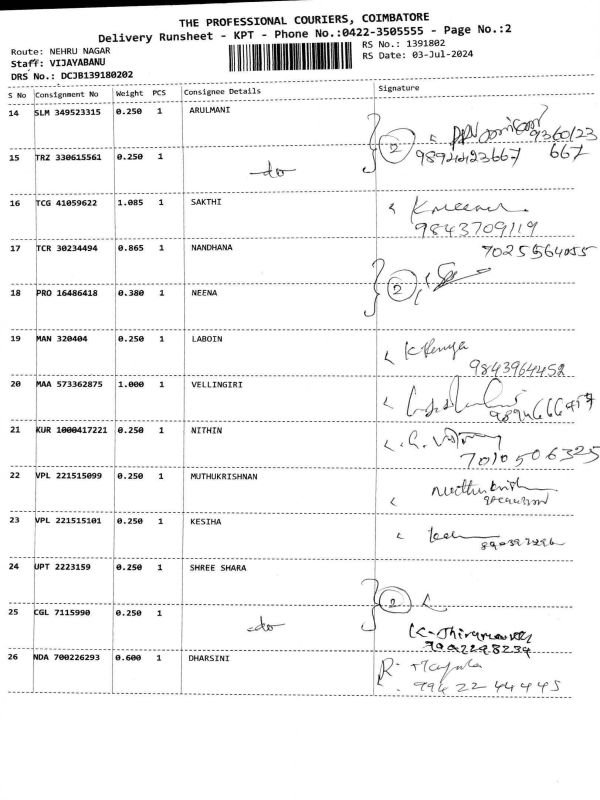 THE PROFESSIONAL COURIERS, COIMBATORE
Delivery Runsheet - KPT - Phone No.:0422-3505555 - Page No.:2
Route: NEHRU NAGAR
RS No.: 1391802
Staff: VIJAYABANU
RS Date: 03-Jul-2024
DRS No.: DCJB139180202
S No Consignment No Weight PCS Consignee Details Signature
14 SLM 349523315 0.250 1 ARULMANI
15 TRZ 330615561 0.250 1 -do- 2 9894423667
16 TCG 41059622 1.085 1 SAKTHI
9843709119
17 TCR 30234494 0.865 1 NANDHANA 7025564055
18 PRO 16486418 0.380 1 NEENA 2
19 MAN 320404 0.250 1 LABOIN
9843964452
20 MAA 573362875 1.000 1 VELLINGIRI
21 KUR 1000417221 0.250 1 NITHIN
7010506325
22 VPL 221515099 0.250 1 MUTHUKRISHNAN
23 VPL 221515101 0.250 1 KESIHA
24 UPT 2223159 0.250 1 SHREE SHARA
25 CGL 7115990 0.250 1 -do- 2
26 NDA 700226293 0.600 1 DHARSINI
9942244445